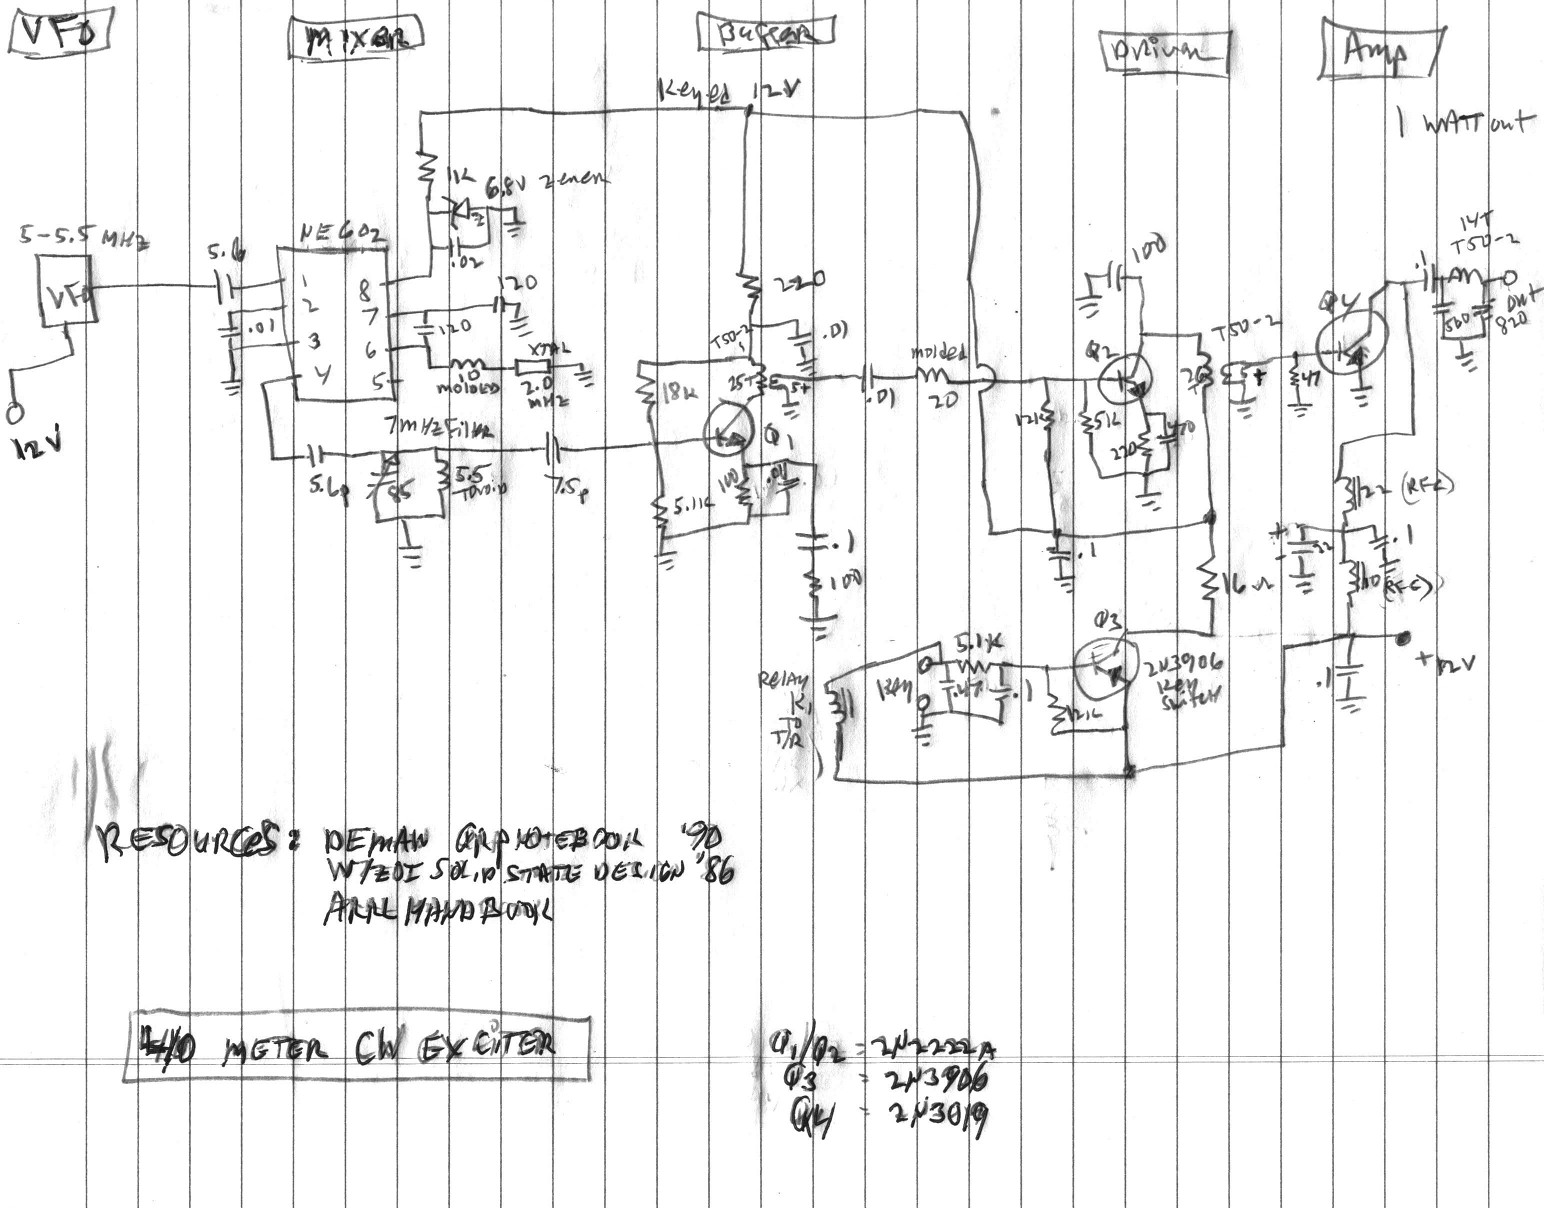 VFO
MIXER
Buffer
Driver
Amp
Keyed 12V
1 WATT out
11K
6.8V zener
.02
5-5.5 MHz
VFO
12V
5.6
.01
NE602
1
2
3
4
8
7
6
5
120
120
10
molded
XTAL
2.0
MHz
7MHz Filter
5.6p
85
5.5
Toroid
7.5p
220
T50-2
.01
25T
5t
18K
Q1
5.11K
100
.01
.1
100
.01
molded
20
100
Q2
12K
51K
220
470
T50-2
5t
.1
16 Ω
Q4
47
.1
14T
T50-2
out
560
820
22 (RFC)
+
22
.1
10 (RFC)
.1
+12V
Relay
K1
TO
T/R
Key
5.1K
.47
.1
12K
Q3
2N3906
Key
Switch
RESOURCES: DEMAW QRP NOTEBOOK '90
W7ZOI SOLID STATE DESIGN '86
ARRL HANDBOOK
40 METER CW EXCITER
Q1/Q2 = 2N2222A
Q3 = 2N3906
Q4 = 2N3019